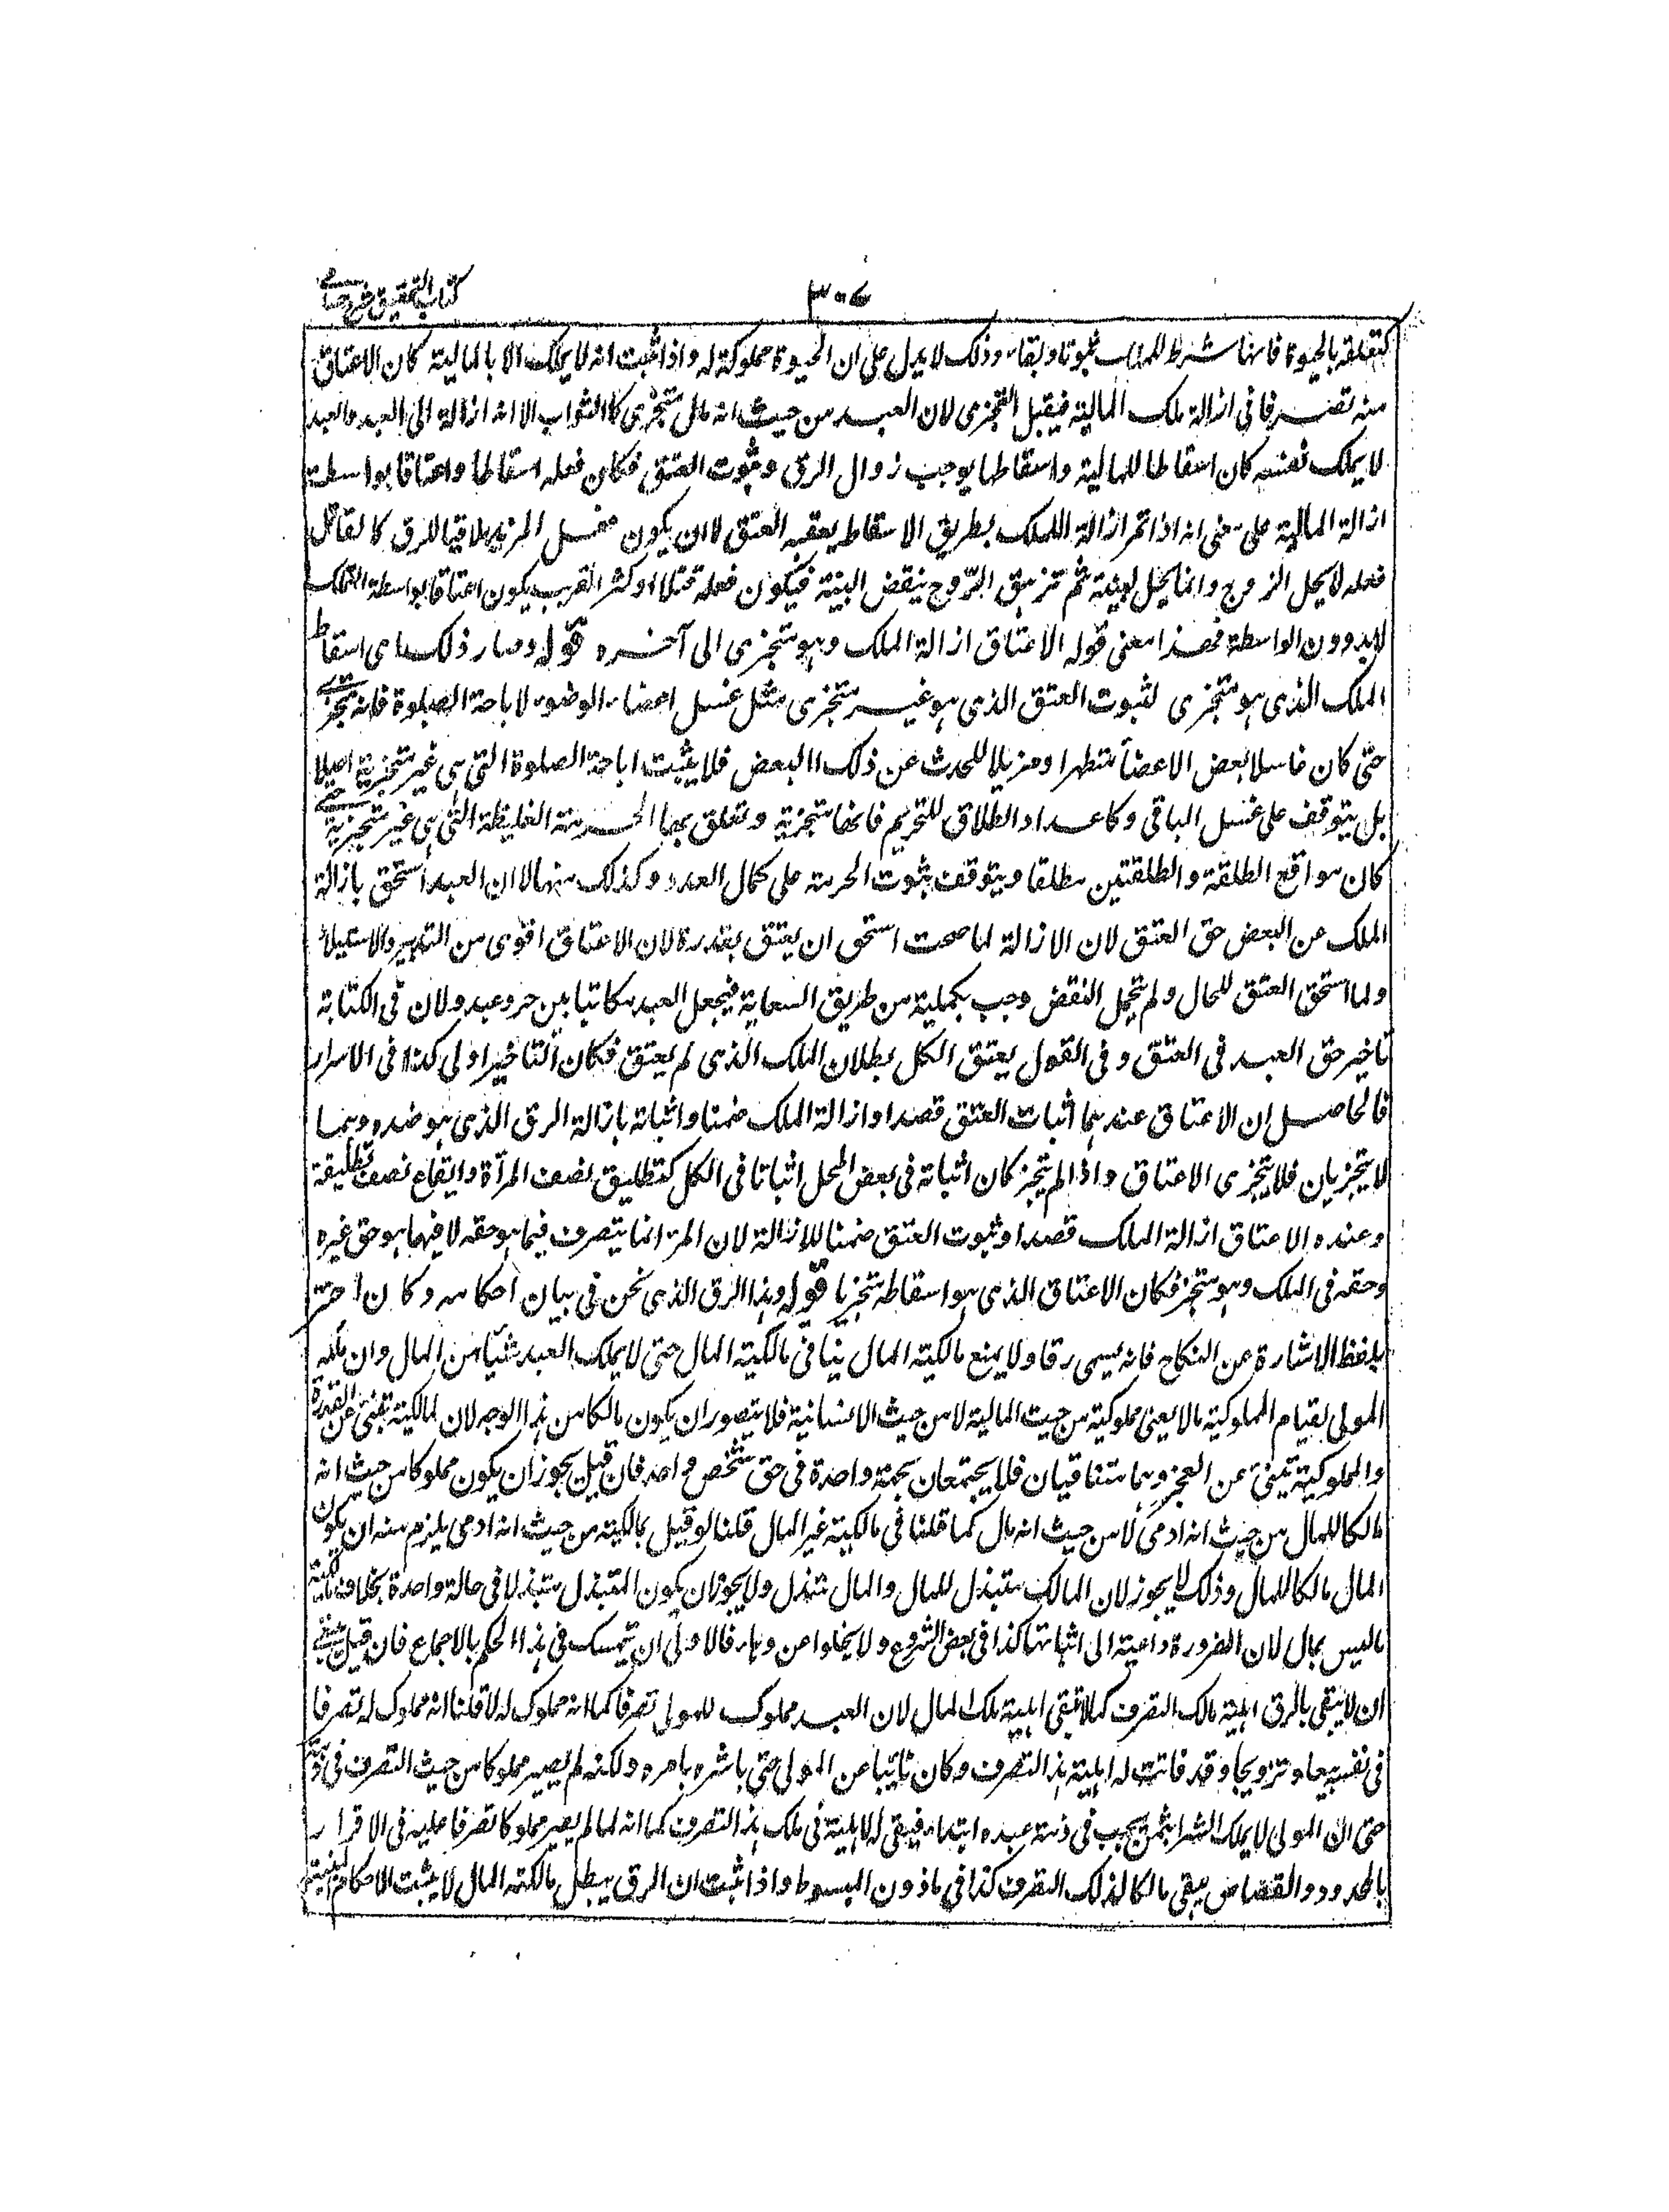 كتاب التحقيق شرح حسامي
٣٠٧
كتعلقه بالحيوة فانها شرط للملك ثبوتا وبقاء وذلك لا يدل على ان الحيوة مملوكة له واذا ثبت انه لا يملك الا بالمالية كان الاعتاق
منه تصرفا في ازالة ملك المالية فيقبل التجزى لان العبد من حيث انه مال متجزى كالثواب الا انه ازالة الى العبد والعبد
لا يملك نفسه كان اسقاطا للمالية واسقاطها يوجب زوال الرق وثبوت العتق فكان فعله اسقاطا واعتاقا بواسطة
ازالة المالية على معنى انه اذا تم ازالة الملك بطريق الاسقاط يعقبه العتق لا ان يكون فعل المزيل ملاقيا للرق كالقاتل
فعله لا يحل الروح وانما يحل البنية ثم تزهق الروح ينقض البنية فيكون فعله قتلا وكشر القريب يكون اعتاقا بواسطة التملك
لا بدون الواسطة فهذا معنى قوله الاعتاق ازالة الملك وهو متجزى الى آخره قوله وصار ذلك اى اسقاط
الملك الذى هو متجزى لثبوت العتق الذى هو غير متجزى مثل غسل اعضاء الوضوء لاباحة الصلوة فانه متجزى
حتى كان غاسلا بعض الاعضاء متطهرا ومزيلا للحدث عن ذلك البعض فلا يثبت اباحة الصلوة التى هى غير متجزية اصلا
بل يتوقف على غسل الباقى وكاعداد الطلاق للتحريم فانها متجزية وتعلق بها الحرمة الغليظة التى هى غير متجزية حتى
كان موقع الطلقة والطلقتين مطلقا ويتوقف ثبوت الحرمة على كمال العدد وكذلك ههنا الا ان العبد استحق بازالة
الملك عن البعض حق العتق لان الازالة لما صحت استحق ان يعتق بقدره لان الاعتاق اقوى من التدبير والاستيلاد
ولما استحق العتق للحال ولم يتحمل النقض وجب تكميله من طريق السعاية فيجعل العبد مكاتبا بين حر وعبد ولان فى الكتابة
تاخير حق العبد فى العتق وفى القول يعتق الكل بطلان الملك الذى لم يعتق فكان التاخير اولى كذا فى الاسرار
فالحاصل ان الاعتاق عندهما اثبات العتق قصدا وازالة الملك ضمنا واثباته بازالة الرق الذى هو ضده وهما
لا يتجزيان فلا يتجزى الاعتاق واذا لم يتجز كان اثباته فى بعض المحل اثباتا فى الكل كتطليق نصف المرأة وايقاع نصف تطليقة
وعنده الاعتاق ازالة الملك قصدا وثبوت العتق ضمنا للازالة لان المرء انما يتصرف فيما هو حقه لا فيما هو حق غيره
وحقه فى الملك وهو متجز فكان الاعتاق الذى هو اسقاطه متجزيا قوله وهذا الرق الذى نحن فى بيان احكامه وكان احترز
بلفظ الاشارة عن النكاح فانه يسمى رقا ولا يمنع مالكية المال ينافى مالكية المال حتى لا يملك العبد شيئا من المال وان ملكه
المولى لقيام المملوكية مالا يعنى مملوكية من حيث المالية لا من حيث الانسانية فلا يتصور ان يكون مالكا من هذا الوجه لان المالكية تنبئ عن القدرة
والمملوكية تنبئ عن العجز وهما متنافيان فلا يجتمعان بجهة واحدة فى حق شخص واحد فان قيل يجوز ان يكون مملوكا من حيث انه
مالكا للمال من حيث انه ادمى لا من حيث انه مال كما قلنا فى مالكية غير المال قلنا لو قيل بمالكيته من حيث انه ادمى يلزم منه ان يكون
المال مالكا للمال وذلك لا يجوز لان المالك مبتذل للمال والمال مبتذل ولا يجوز ان يكون المبتذل مبتذلا فى حالة واحدة بخلاف مالكية
ماليس بمال لان الضرورة داعية الى اثباتها كذا فى بعض الشروح ولا يخلوا عن وهاء فالاولى ان يتمسك فى هذا الحكم بالاجماع فان قيل ينبغى
ان لا يبقى بالرق اهلية مالك التصرف كما لا تبقى اهلية ملك المال لان العبد مملوك للمولى تصرفا كما انه مملوك له لا قلنا انه مملوك له تصرفا
فى نفسه بيعا وتزويجا وقد فاتت له اهلية هذا التصرف وكان نائبا عن المولى حتى باشره بامره ولكنه لم يصير مملوكا من حيث التصرف فى ذمته
حتى ان المولى لا يملك الشراء بثمن يجب فى ذمة عبده ابتداء فبقى له الاهلية فى ملك هذا التصرف كما انه لما لم يصير مملوكا تصرفا عليه فى الاقرار
بالحدود والقصاص يبقى مالكا لذلك التصرف كذا فى ماذون المبسوط واذا ثبت ان الرق يبطل مالكية المال لا يثبت الاحكام المبنية